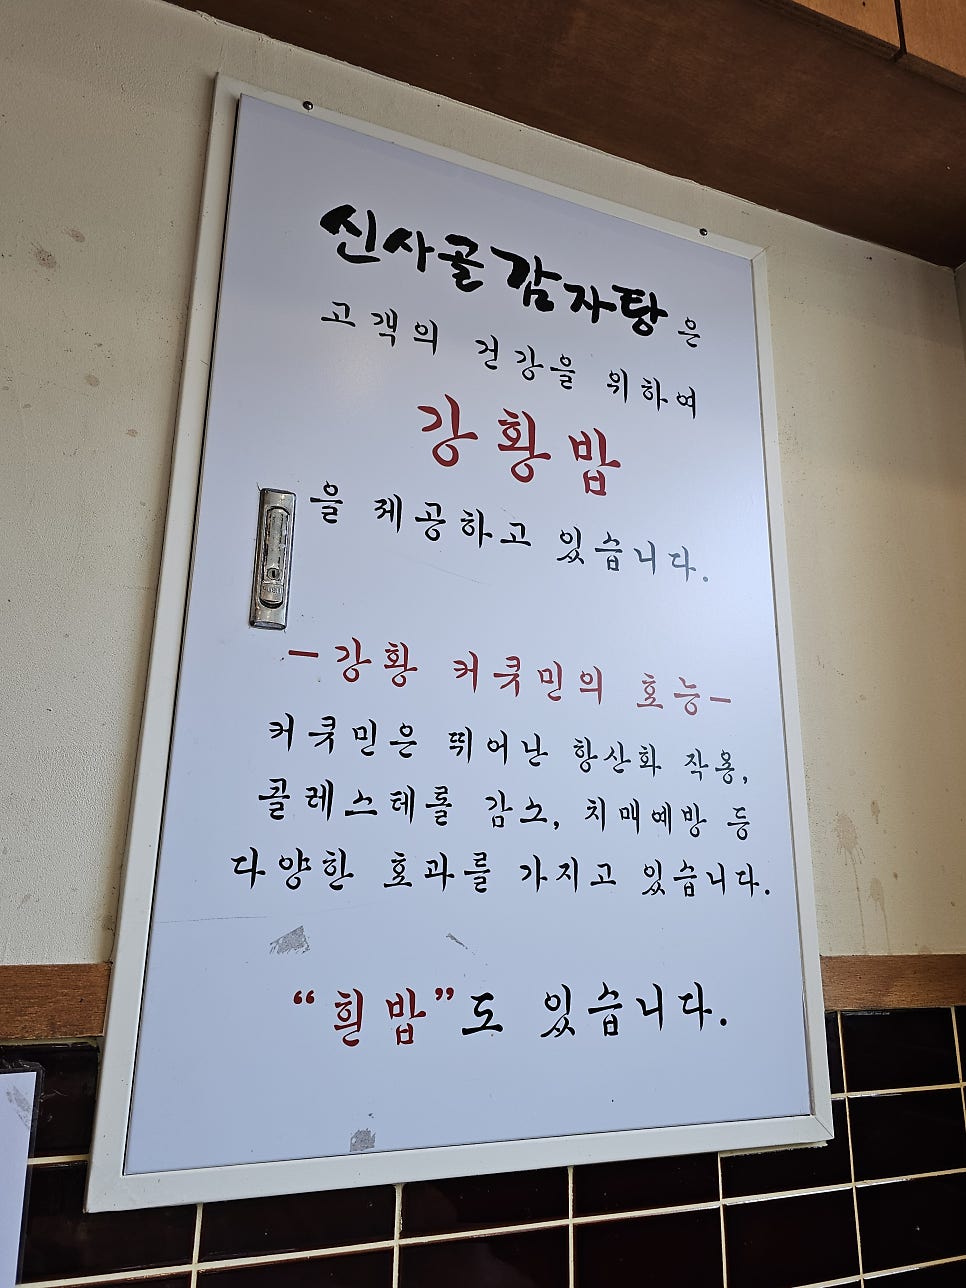 신사골감자탕은
고객의 건강을 위하여
강황밥
을 제공하고 있습니다.
-강황 커큣민의 효능-
커큣민은 뛰어난 항산화 작용,
콜레스테롤 감소, 치매예방 등
다양한 효과를 가지고 있습니다.
“흰밥”도 있습니다.